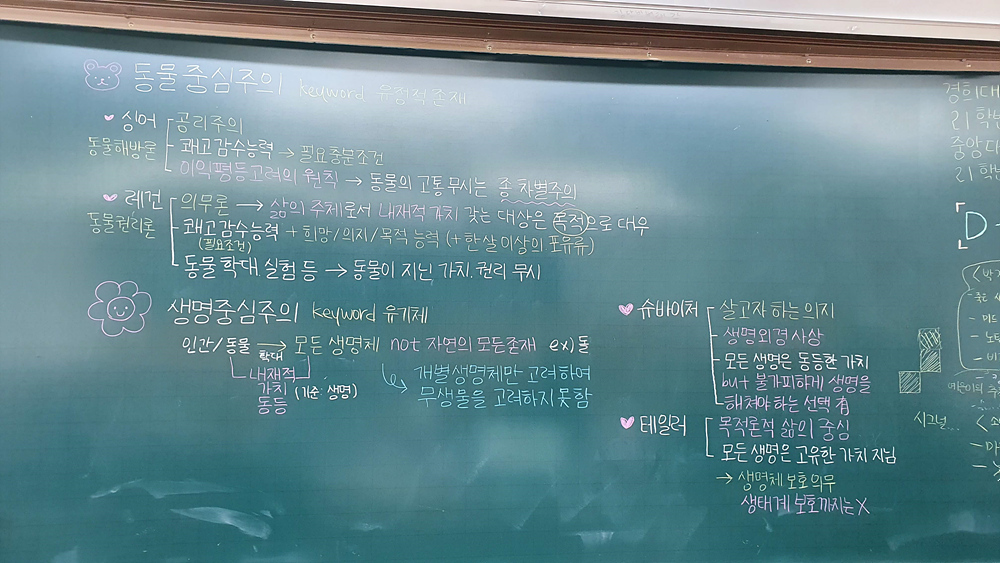 동물중심주의 keyword 유정적 존재
싱어 공리주의
동물해방론 쾌고감수능력 → 필요충분조건
이익평등고려의 원칙 → 동물의 고통 무시는 종 차별주의
레건 의무론 → 삶의 주체로서 내재적 가치 갖는 대상은 목적으로 대우
동물권리론 쾌고감수능력 + 희망/의지/목적 능력 (+한 살 이상의 포유류)
(필요조건)
동물 학대 실험 등 → 동물이 지닌 가치. 권리 무시
생명중심주의 keyword 유기체
인간/동물 → 모든 생명체 not 자연의 모든존재 ex) 돌
확대
내재적
가치 (기준: 생명)
동등
개별 생명체만 고려하여
무생물을 고려하지 못함
슈바이처 살고자 하는 의지
생명외경사상
모든 생명은 동등한 가치
but 불가피하게 생명을
해쳐야 하는 선택 有
테일러 목적론적 삶의 중심
모든 생명은 고유한 가치 지님
→ 생명체 보호 의무
생태계 보호까지는 X
경희대
21 학번
중앙대
21 학번
D
시그널...